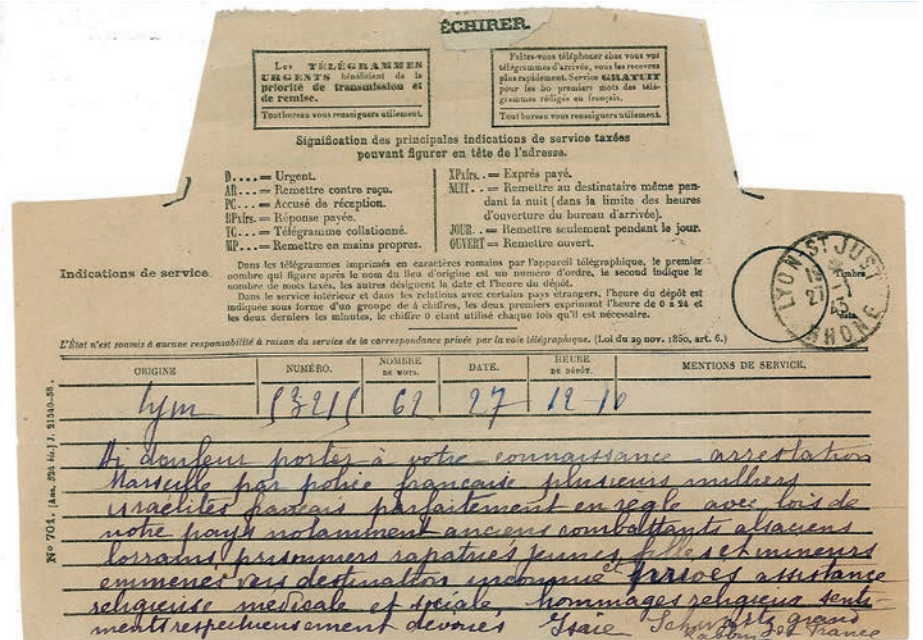 ÉCHIRER.
Les TÉLÉGRAMMES
URGENTS bénéficient de la
priorité de transmission et
de remise.
Tout bureau vous renseignera utilement.
Faites-vous téléphoner chez vous vos
télégrammes d'arrivée, vous les recevrez
plus rapidement. Service GRATUIT
pour les 50 premiers mots des télé-
grammes rédigés en français.
Tout bureau vous renseignera utilement.
Signification des principales indications de service taxées
pouvant figurer en tête de l'adresse.
D.... = Urgent.
AR... = Remettre contre reçu.
PC... = Accusé de réception.
RPxfrs. = Réponse payée.
TC... = Télégramme collationné.
MP... = Remettre en mains propres.
XPxfrs. = Exprès payé.
NUIT.. = Remettre au destinataire même pen-
dant la nuit (dans la limite des heures
d'ouverture du bureau d'arrivée).
JOUR.. = Remettre seulement pendant le jour.
OUVERT = Remettre ouvert.
Indications de service.
Dans les télégrammes imprimés en caractères romains par l'appareil télégraphique, le premier
nombre qui figure après le nom du lieu d'origine est un numéro d'ordre, le second indique le
nombre de mots taxés, les autres désignent la date et l'heure du dépôt.
Dans le service intérieur et dans les relations avec certains pays étrangers, l'heure du dépôt est
indiquée sous forme d'un groupe de 4 chiffres, les deux premiers exprimant l'heure de 0 à 24 et
les deux derniers les minutes, le chiffre 0 étant utilisé chaque fois qu'il est nécessaire.
Timbre
LYON-ST JUST
RHONE
L'État n'est soumis à aucune responsabilité à raison du service de la correspondance privée par la voie télégraphique. (Loi du 29 nov. 1850, art. 6.)
ORIGINE
NUMÉRO.
NOMBRE
DE MOTS.
DATE.
HEURE
DE DÉPÔT.
MENTIONS DE SERVICE.
Lyon 53215 62 27 12-10
N° 701.
Ai douleur porter à votre connaissance arrestation
Marseille par police française plusieurs milliers
israélites français parfaitement en règle avec lois de
votre pays notamment anciens combattants alsaciens
lorrains prisonniers rapatriés jeunes filles et mineurs
emmenés vers destination inconnue et privés assistance
religieuse médicale et sociale, hommages religieux senti-
ments respectueusement dévoués Isaïe Schwartz grand
rabbin de France